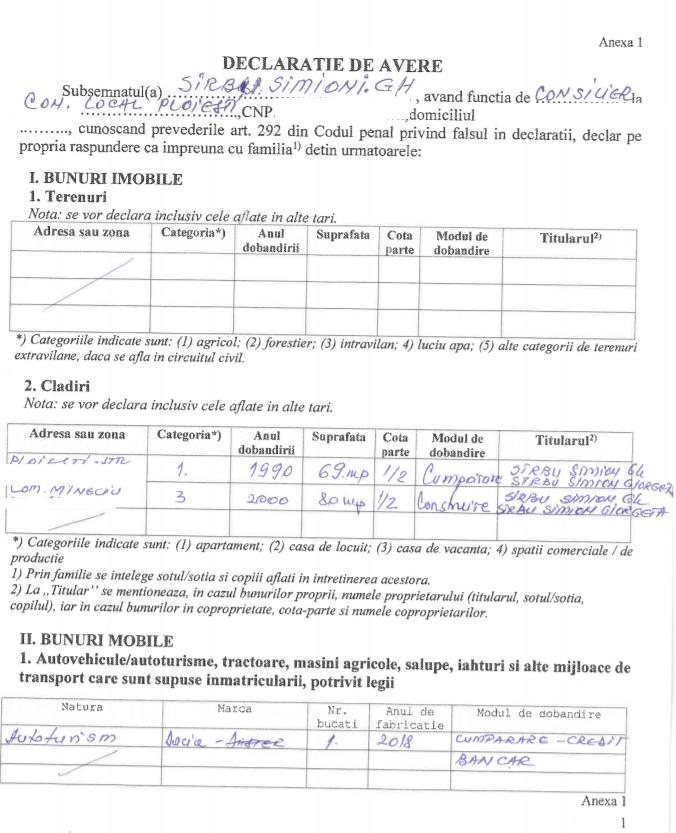 Anexa 1
DECLARATIE DE AVERE
Subsemnatul(a) SIRBU SIMION.GH, avand functia de CONSILIER la
CON. LOCAL PLOIESTI,CNP. ,domiciliul
.........., cunoscand prevederile art. 292 din Codul penal privind falsul in declaratii, declar pe
propria raspundere ca impreuna cu familia1) detin urmatoarele:
I. BUNURI IMOBILE
1. Terenuri
Nota: se vor declara inclusiv cele aflate in alte tari.
Adresa sau zona Categoria*) Anul dobandirii Suprafata Cota parte Modul de dobandire Titularul2)
*) Categoriile indicate sunt: (1) agricol; (2) forestier; (3) intravilan; 4) luciu apa; (5) alte categorii de terenuri
extravilane, daca se afla in circuitul civil.
2. Cladiri
Nota: se vor declara inclusiv cele aflate in alte tari.
Adresa sau zona Categoria*) Anul dobandirii Suprafata Cota parte Modul de dobandire Titularul2)
PLOIESTI-STR 1. 1990 69.mp 1/2 Cumparare SIRBU SIMION GH SIRBU SIMION GIORGETA
COM. MINECIU 3 2000 80 mp 1/2 Construire SIRBU SIMION GH SIRBU SIMION GIORGETA
*) Categoriile indicate sunt: (1) apartament; (2) casa de locuit; (3) casa de vacanta; 4) spatii comerciale / de
productie
1) Prin familie se intelege sotul/sotia si copiii aflati in intretinerea acestora.
2) La ,,Titular'' se mentioneaza, in cazul bunurilor proprii, numele proprietarului (titularul, sotul/sotia,
copilul), iar in cazul bunurilor in coproprietate, cota-parte si numele coproprietarilor.
II. BUNURI MOBILE
1. Autovehicule/autoturisme, tractoare, masini agricole, salupe, iahturi si alte mijloace de
transport care sunt supuse inmatricularii, potrivit legii
Natura Marca Nr. bucati Anul de fabricatie Modul de dobandire
Autoturism Dacia - 1. 2018 CUMPARARE - CREDIT
BANCAR
Anexa 1
1